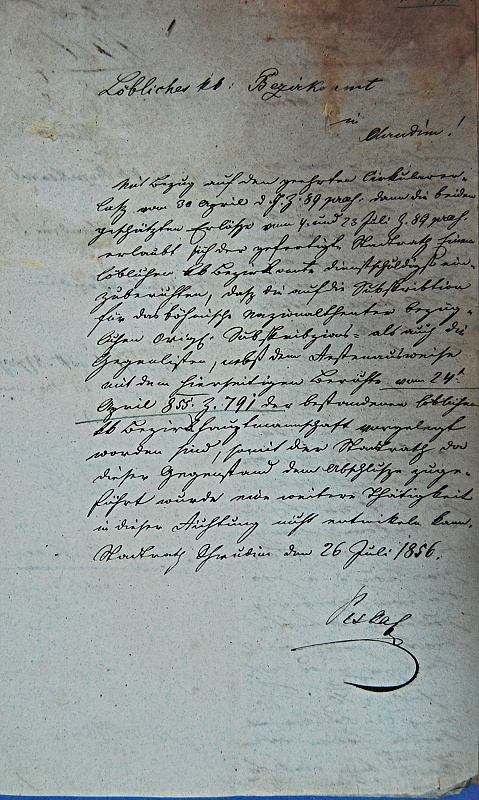 Löbliches kk: Bezirksamt
in
Chrudim!
Mit Bezug auf den geehrten Cirkularer-
laß vom 30 April d. J. Z: 89 praes. dann die beiden
geschätzten Erläße vom 4. und 23 Juli Z. 89 praes.
erlaubt sich der gefertigte Stadtrath einem
löblichen kk Bezirksamte dienstschuldigst ein-
zuberichten, daß die auf die Subskribtion
für das böhmische Nazionaltheater bezüg-
lichen Subskribzions- als auch die
Gegenlisten, nebst dem
mit dem hierseitigen Berichte vom 24t
April 855. Z. 791 der bestandenen löblichen
kk Bezirkshauptmannschaft vorgelegt
worden sind, somit der Stadtrath da
dieser Gegenstand dem Abschluße zuge-
führt wurde eine weitere Thätigkeit
in dieser Richtung nicht entwikeln kann.
Stadtrath Chrudim den 26 Juli 1856.